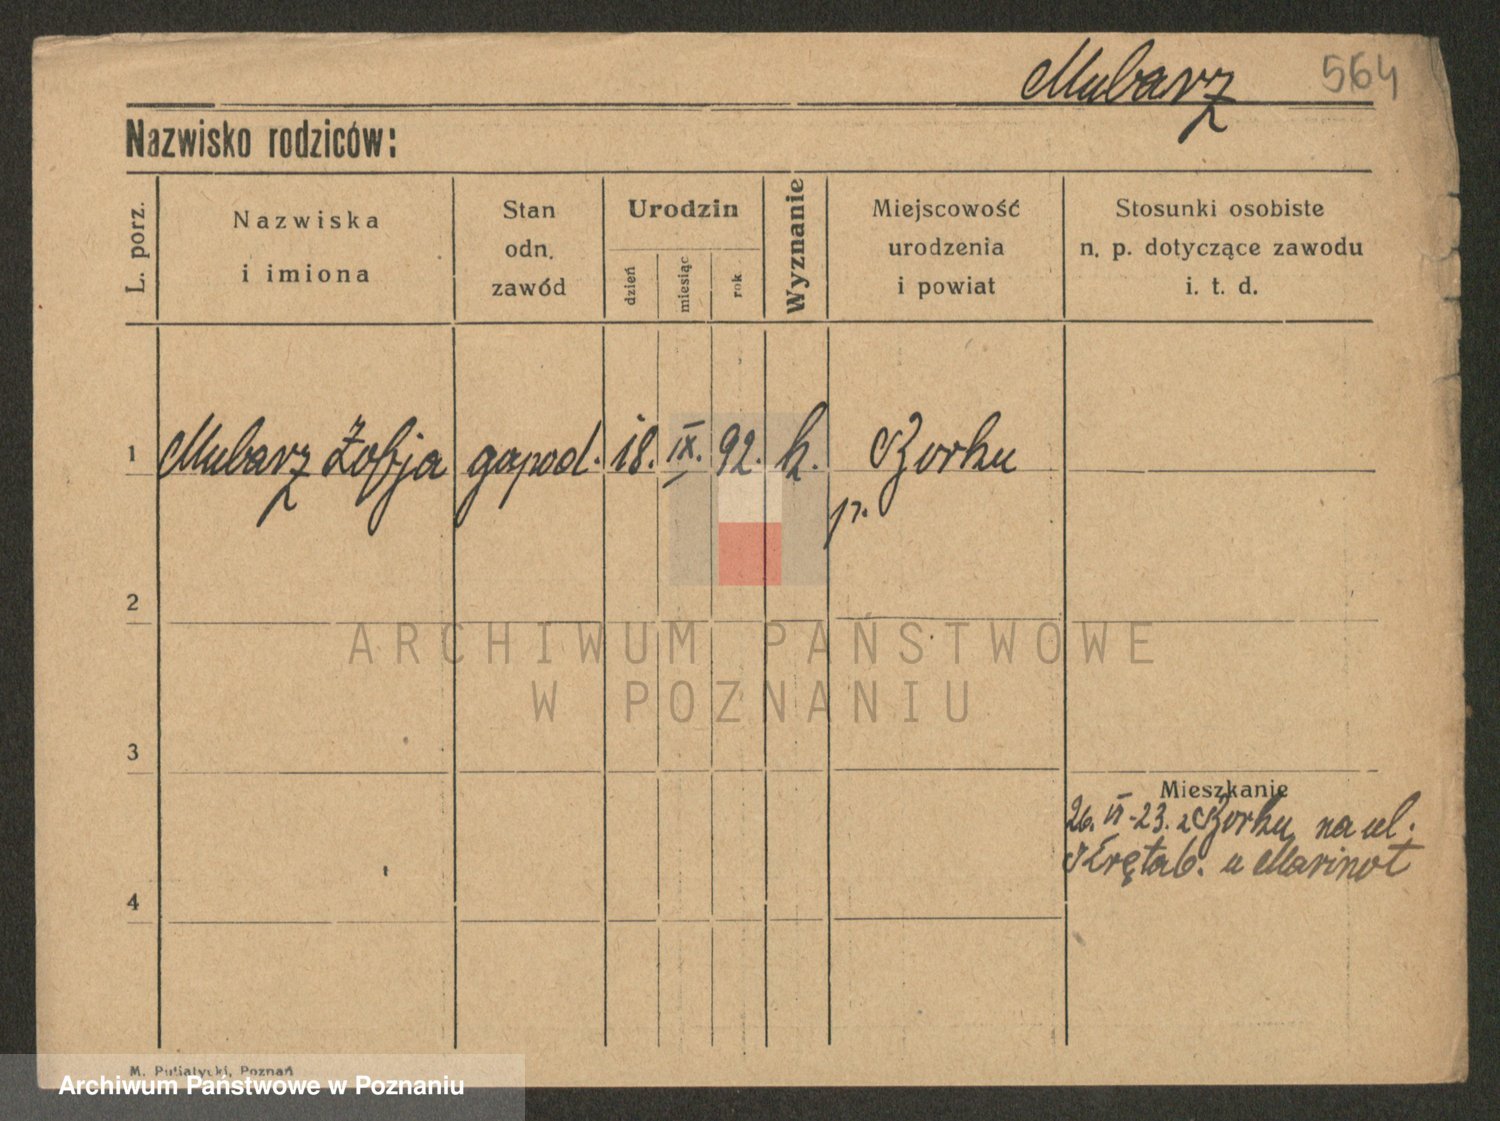 Mubarz 564
Nazwisko rodziców:
L. porz.
Nazwiska
i imiona
Stan
odn.
zawód
Urodzin
dzień
miesiąc
rok
Wyznanie
Miejscowość
urodzenia
i powiat
Stosunki osobiste
n. p. dotyczące zawodu
i. t. d.
1 Mubarz Zofja gopod. 18. IX. 92. k. Borku
p.
2
3
Mieszkanie
26. VI - 23. z Borku na ul.
u Marinot
4
ARCHIWUM PAŃSTWOWE
W POZNANIU
M. Putiatycki, Poznań
Archiwum Państwowe w Poznaniu